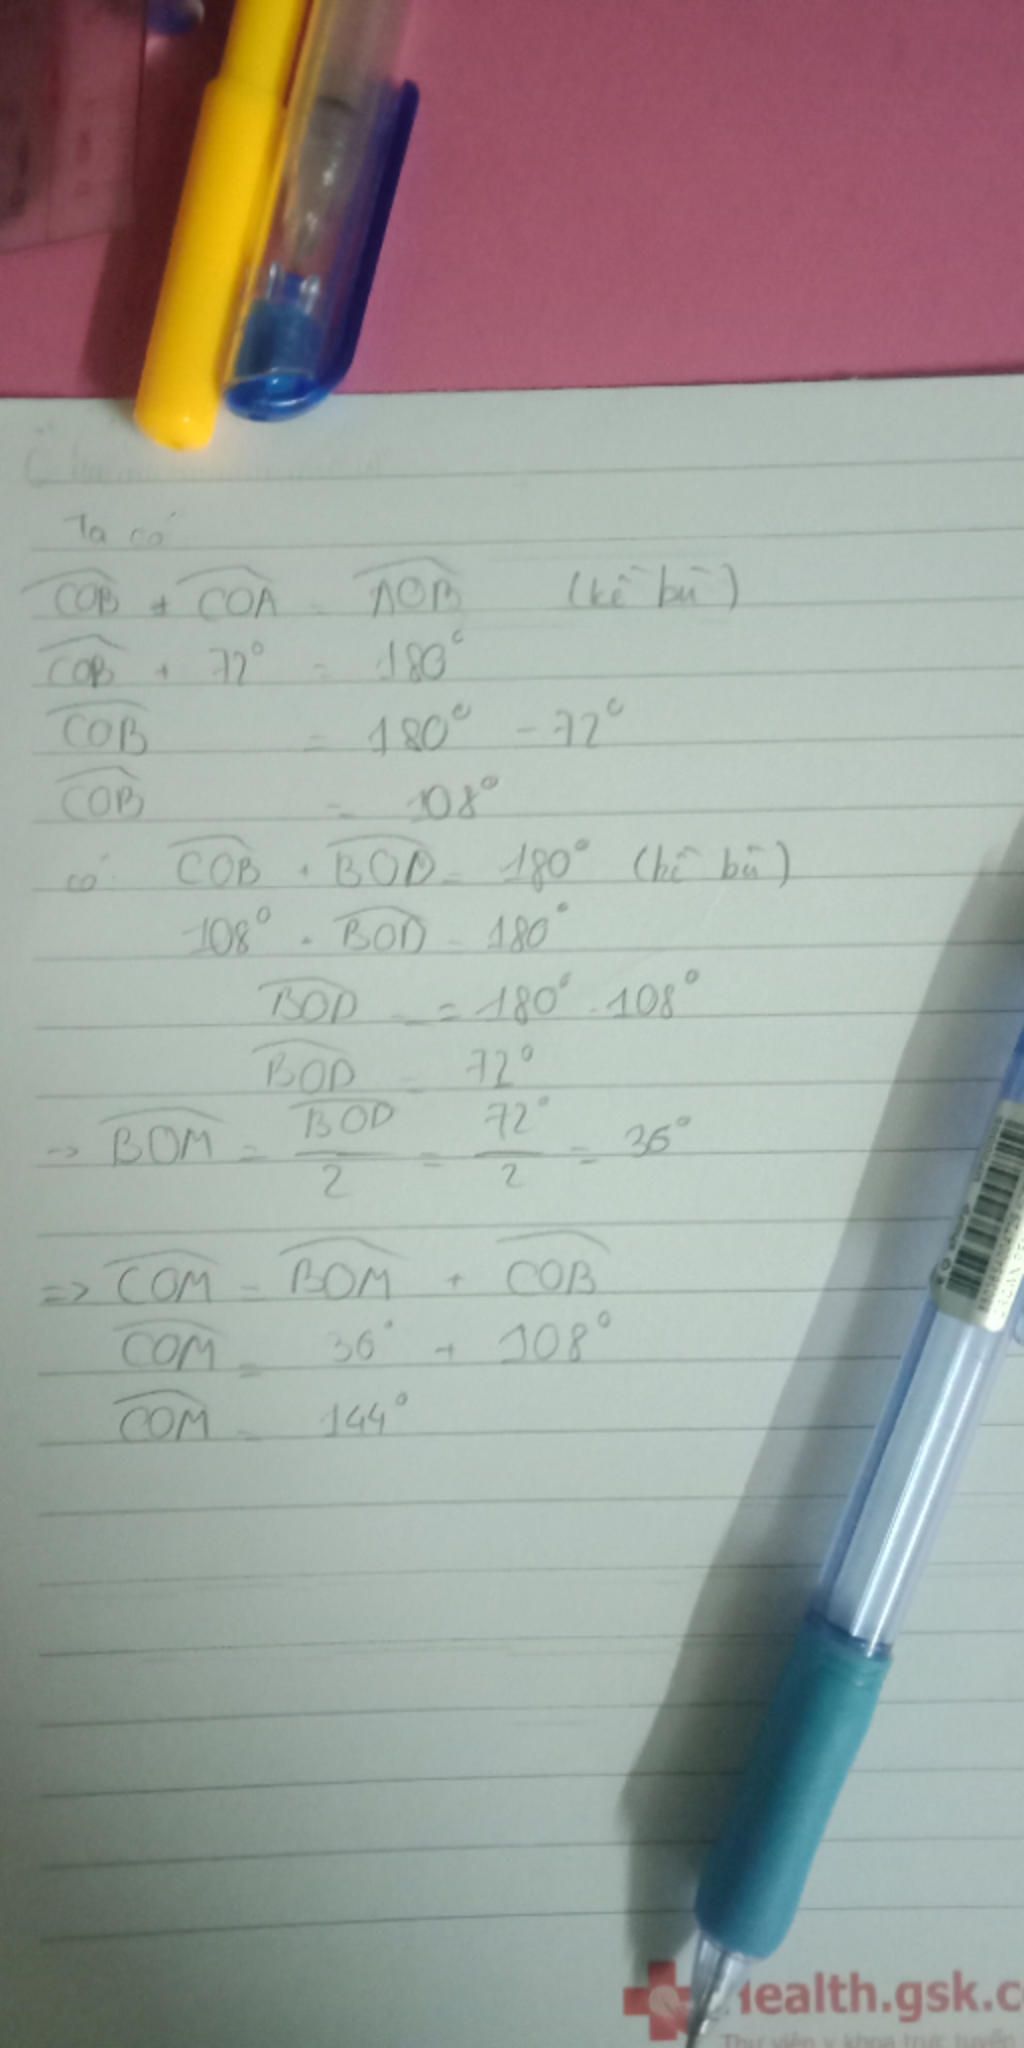 Ta có
COB + COA = AOB (kề bù)
COB + 72° = 180°
COB = 180° - 72°
COB = 108°
có COB + BOD = 180° (kề bù)
108° + BOD = 180°
BOD = 180° - 108°
BOD = 72°
-> BOM = BOD/2 = 72°/2 = 36°
=> COM = BOM + COB
COM = 36° + 108°
COM = 144°
Health.gsk.c
Thư viện y khoa trực tuyến